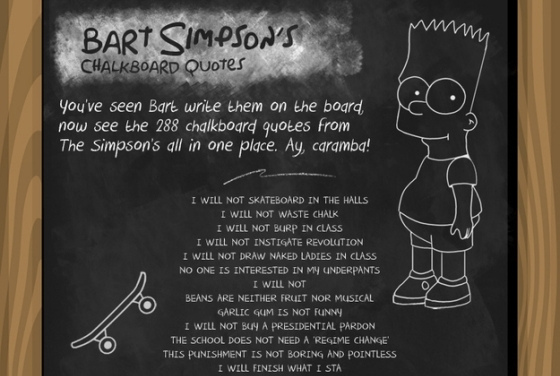 BART SIMPSON'S
CHALKBOARD QUOTES
You've seen Bart write them on the board,
now see the 288 chalkboard quotes from
The Simpson's all in one place. Ay, caramba!
I WILL NOT SKATEBOARD IN THE HALLS
I WILL NOT WASTE CHALK
I WILL NOT BURP IN CLASS
I WILL NOT INSTIGATE REVOLUTION
I WILL NOT DRAW NAKED LADIES IN CLASS
NO ONE IS INTERESTED IN MY UNDERPANTS
I WILL NOT
BEANS ARE NEITHER FRUIT NOR MUSICAL
GARLIC GUM IS NOT FUNNY
I WILL NOT BUY A PRESIDENTIAL PARDON
THE SCHOOL DOES NOT NEED A 'REGIME CHANGE'
THIS PUNISHMENT IS NOT BORING AND POINTLESS
I WILL FINISH WHAT I STA